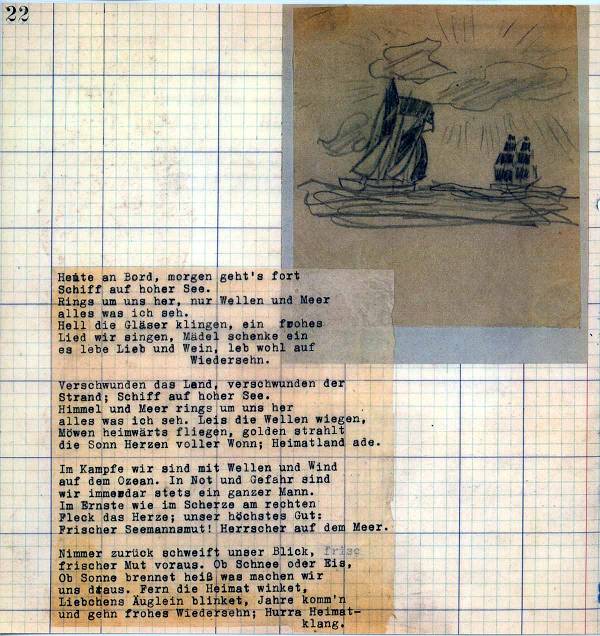 22
Heute an Bord, morgen geht's fort
Schiff auf hoher See.
Rings um uns her, nur Wellen und Meer
alles was ich seh.
Hell die Gläser klingen, ein frohes
Lied wir singen, Mädel schenke ein
es lebe Lieb und Wein, leb wohl auf
Wiedersehn.
Verschwunden das Land, verschwunden der
Strand; Schiff auf hoher See.
Himmel und Meer rings um uns her
alles was ich seh. Leis die Wellen wiegen,
Möwen heimwärts fliegen, golden strahlt
die Sonn Herzen voller Wonn; Heimatland ade.
Im Kampfe wir sind mit Wellen und Wind
auf dem Ozean. In Not und Gefahr sind
wir immerdar stets ein ganzer Mann.
Im Ernste wie im Scherze am rechten
Fleck das Herze; unser höchstes Gut:
Frischer Seemannsmut! Herrscher auf dem Meer.
Nimmer zurück schweift unser Blick, frisc
frischer Mut voraus. Ob Schnee oder Eis,
Ob Sonne brennet heiß was machen wir
uns draus. Fern die Heimat winket,
Liebchens Äuglein blinket, Jahre komm'n
und gehn frohes Wiedersehn; Hurra Heimat-
klang.